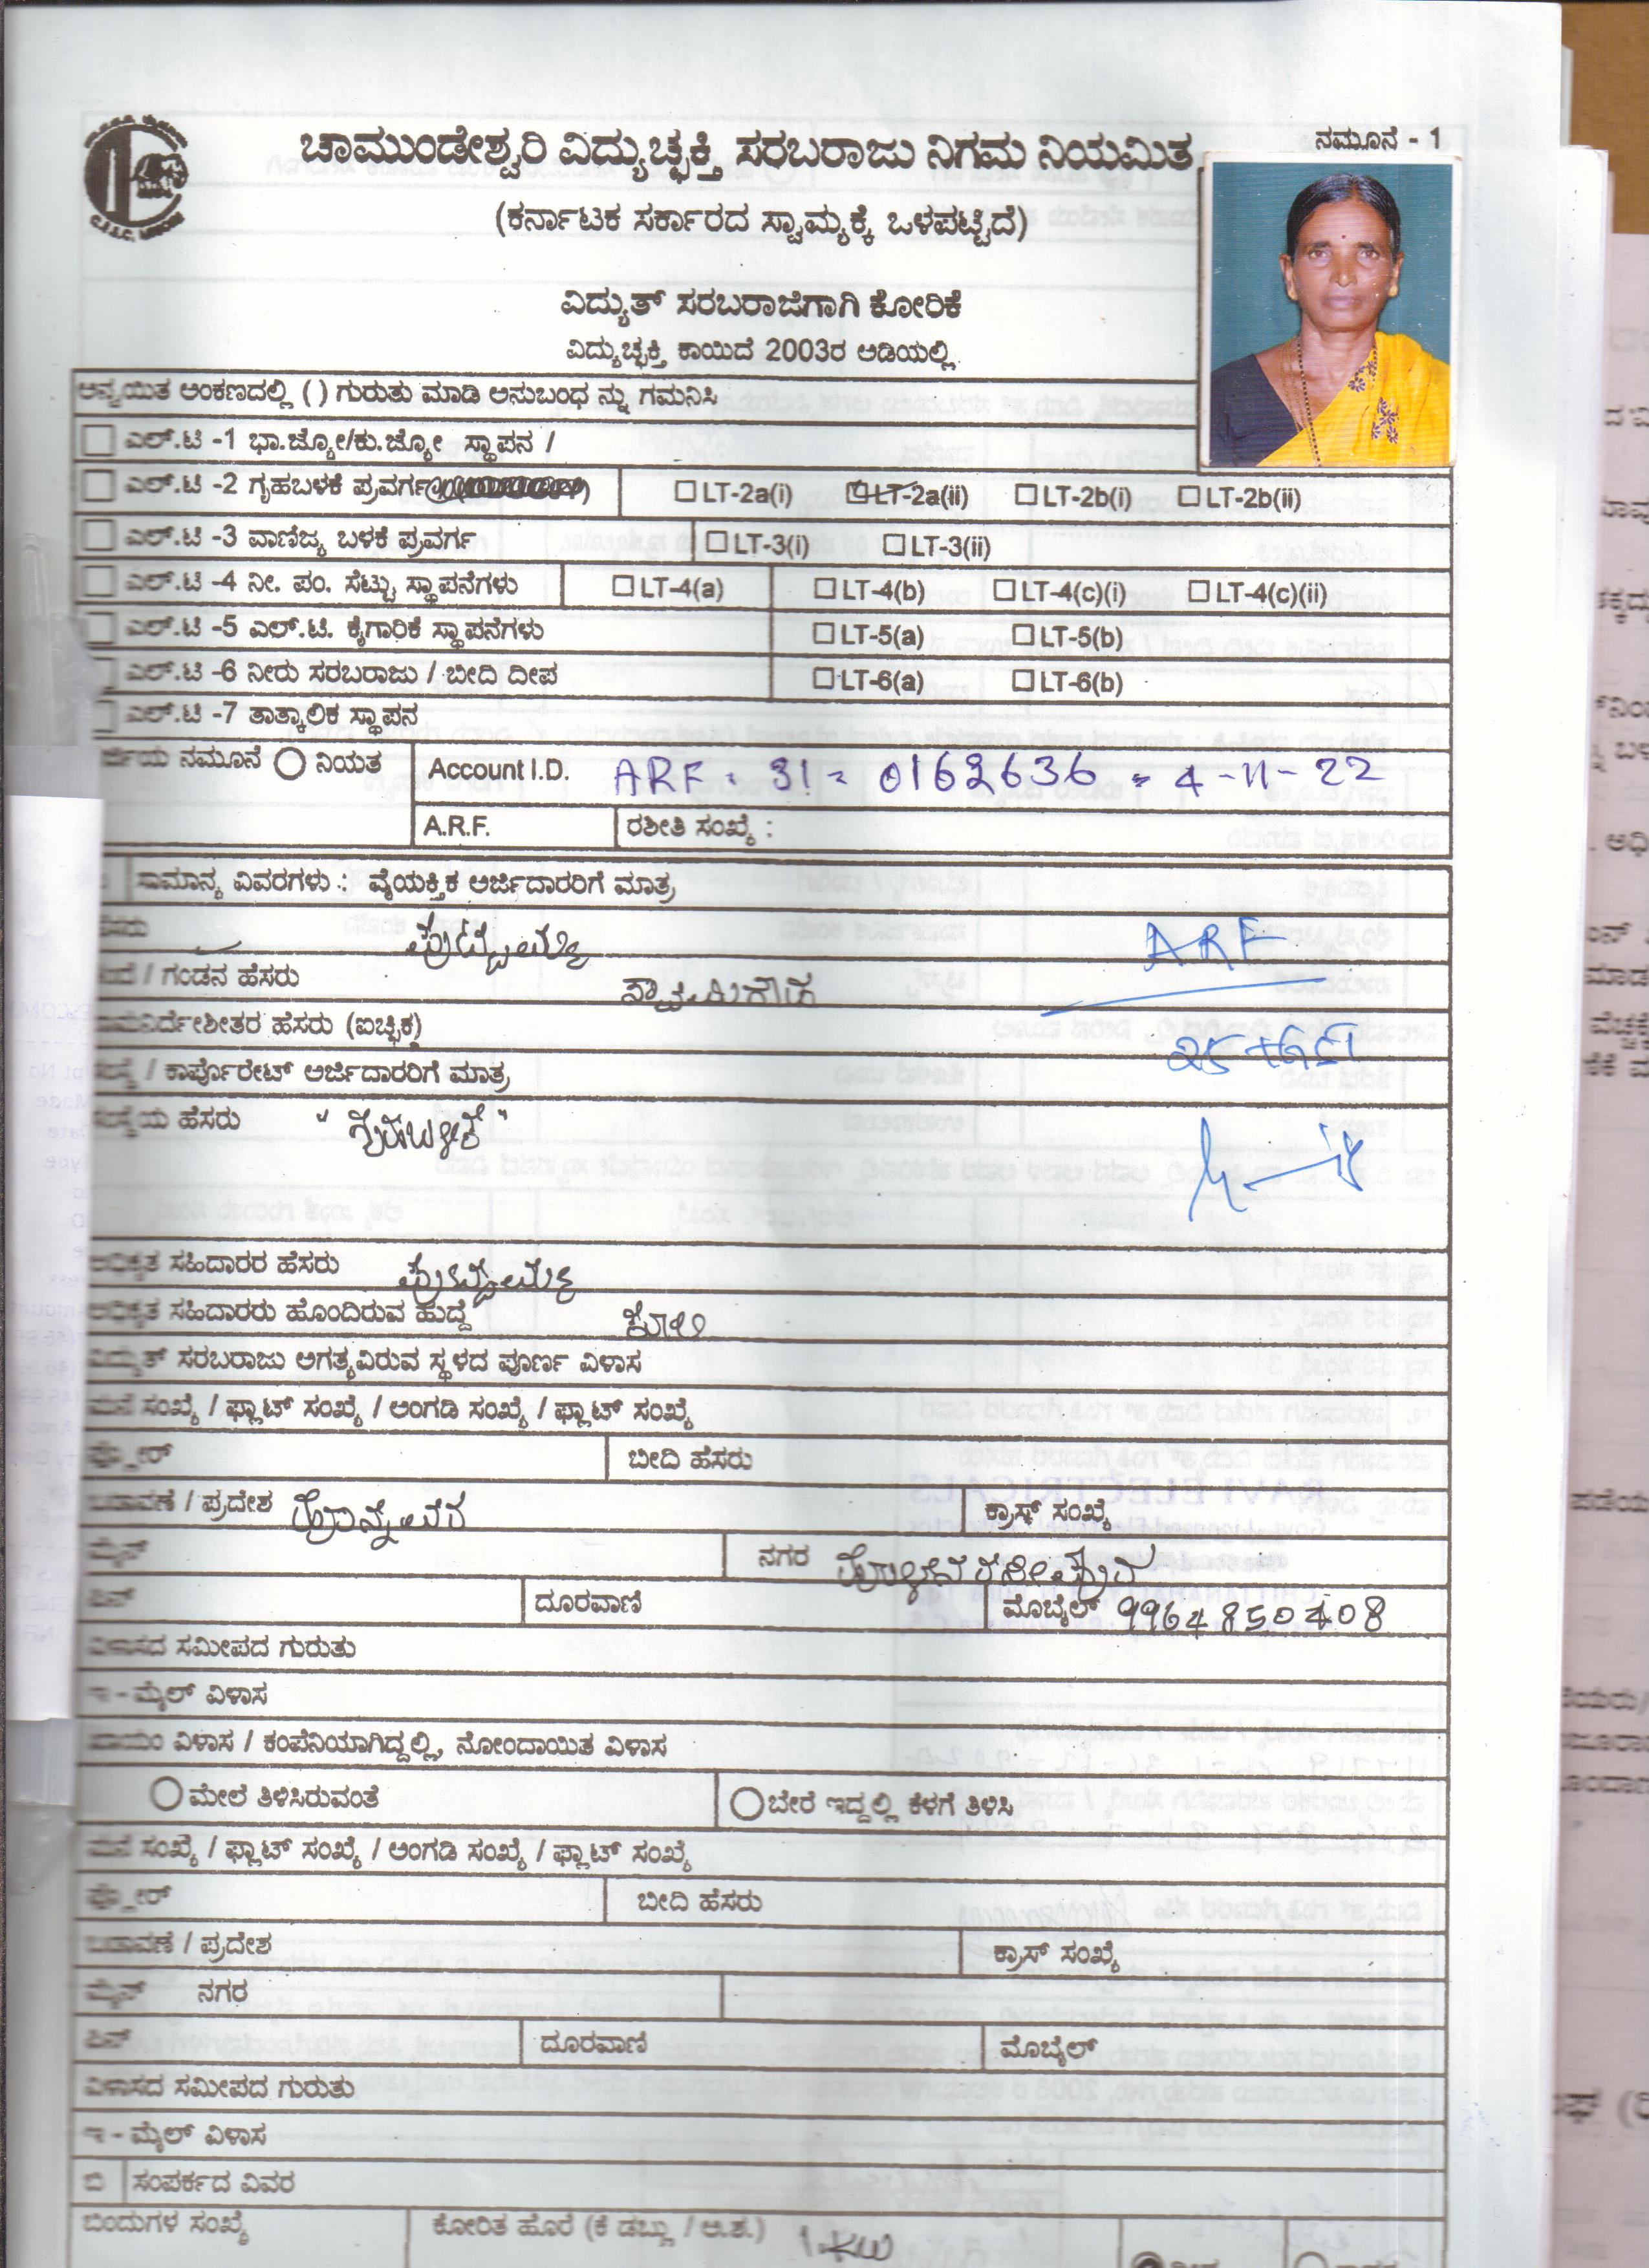 ನಮೂನೆ - 1
ಚಾಮುಂಡೇಶ್ವರಿ ವಿದ್ಯುಚ್ಛಕ್ತಿ ಸರಬರಾಜು ನಿಗಮ ನಿಯಮಿತ
(ಕರ್ನಾಟಕ ಸರ್ಕಾರದ ಸ್ವಾಮ್ಯಕ್ಕೆ ಒಳಪಟ್ಟಿದೆ)
ವಿದ್ಯುತ್ ಸರಬರಾಜಿಗಾಗಿ ಕೋರಿಕೆ
ವಿದ್ಯುಚ್ಛಕ್ತಿ ಕಾಯಿದೆ 2003ರ ಅಡಿಯಲ್ಲಿ
ಅನ್ವಯಿತ ಅಂಕಣದಲ್ಲಿ ( ) ಗುರುತು ಮಾಡಿ ಅನುಬಂಧ ನ್ನು ಗಮನಿಸಿ
ಎಲ್.ಟಿ -1 ಭಾ.ಜ್ಯೋ/ಕು.ಜ್ಯೋ ಸ್ಥಾಪನ /
ಎಲ್.ಟಿ -2 ಗೃಹಬಳಕೆ ಪ್ರವರ್ಗ LT-2a(i) LT-2a(ii) LT-2b(i) LT-2b(ii)
ಎಲ್.ಟಿ -3 ವಾಣಿಜ್ಯ ಬಳಕೆ ಪ್ರವರ್ಗ LT-3(i) LT-3(ii)
ಎಲ್.ಟಿ -4 ನೀ. ಪಂ. ಸೆಟ್ಟು ಸ್ಥಾಪನೆಗಳು LT-4(a) LT-4(b) LT-4(c)(i) LT-4(c)(ii)
ಎಲ್.ಟಿ -5 ಎಲ್.ಟಿ. ಕೈಗಾರಿಕೆ ಸ್ಥಾಪನೆಗಳು LT-5(a) LT-5(b)
ಎಲ್.ಟಿ -6 ನೀರು ಸರಬರಾಜು / ಬೀದಿ ದೀಪ LT-6(a) LT-6(b)
ಎಲ್.ಟಿ -7 ತಾತ್ಕಾಲಿಕ ಸ್ಥಾಪನ
ನಮೂನೆ ನಿಯತ Account I.D. ARF - 31 - 0162636 - 4-11-22
A.R.F. ರಶೀತಿ ಸಂಖ್ಯೆ :
ಸಾಮಾನ್ಯ ವಿವರಗಳು : ವೈಯಕ್ತಿಕ ಅರ್ಜಿದಾರರಿಗೆ ಮಾತ್ರ
ಪುಟ್ಟಮ್ಮ ARF
/ ಗಂಡನ ಹೆಸರು
ಹೆಸರು (ಐಚ್ಛಿಕ)
/ ಕಾರ್ಪೊರೇಟ್ ಅರ್ಜಿದಾರರಿಗೆ ಮಾತ್ರ
ಹೆಸರು "ಗೃಹಬಳಕೆ"
ಅಧಿಕೃತ ಸಹಿದಾರರ ಹೆಸರು ಪುಟ್ಟಮ್ಮ
ಅಧಿಕೃತ ಸಹಿದಾರರು ಹೊಂದಿರುವ ಹುದ್ದೆ ಕೂಲಿ
ವಿದ್ಯುತ್ ಸರಬರಾಜು ಅಗತ್ಯವಿರುವ ಸ್ಥಳದ ಪೂರ್ಣ ವಿಳಾಸ
ಮನೆ ಸಂಖ್ಯೆ / ಫ್ಲಾಟ್ ಸಂಖ್ಯೆ / ಅಂಗಡಿ ಸಂಖ್ಯೆ / ಫ್ಲಾಟ್ ಸಂಖ್ಯೆ
ಫ್ಲೋರ್ ಬೀದಿ ಹೆಸರು
ಬಡಾವಣೆ / ಪ್ರದೇಶ ಕ್ರಾಸ್ ಸಂಖ್ಯೆ
ಮೈನ್ ನಗರ ಹೊಳೆನರಸೀಪುರ
ಪಿನ್ ದೂರವಾಣಿ ಮೊಬೈಲ್ 9964850408
ವಿಳಾಸದ ಸಮೀಪದ ಗುರುತು
ಇ - ಮೈಲ್ ವಿಳಾಸ
ಖಾಯಂ ವಿಳಾಸ / ಕಂಪೆನಿಯಾಗಿದ್ದಲ್ಲಿ, ನೋಂದಾಯಿತ ವಿಳಾಸ
ಮೇಲೆ ತಿಳಿಸಿರುವಂತೆ ಬೇರೆ ಇದ್ದಲ್ಲಿ ಕೆಳಗೆ ತಿಳಿಸಿ
ಮನೆ ಸಂಖ್ಯೆ / ಫ್ಲಾಟ್ ಸಂಖ್ಯೆ / ಅಂಗಡಿ ಸಂಖ್ಯೆ / ಫ್ಲಾಟ್ ಸಂಖ್ಯೆ
ಫ್ಲೋರ್ ಬೀದಿ ಹೆಸರು
ಬಡಾವಣೆ / ಪ್ರದೇಶ ಕ್ರಾಸ್ ಸಂಖ್ಯೆ
ಮೈನ್ ನಗರ
ಪಿನ್ ದೂರವಾಣಿ ಮೊಬೈಲ್
ವಿಳಾಸದ ಸಮೀಪದ ಗುರುತು
ಇ - ಮೈಲ್ ವಿಳಾಸ
ಬಿ ಸಂಪರ್ಕದ ವಿವರ
ಬಿಂದುಗಳ ಸಂಖ್ಯೆ ಕೋರಿತ ಹೊರೆ (ಕೆ ಡಬ್ಲ್ಯು / ಅ.ಶ.) 1 KW